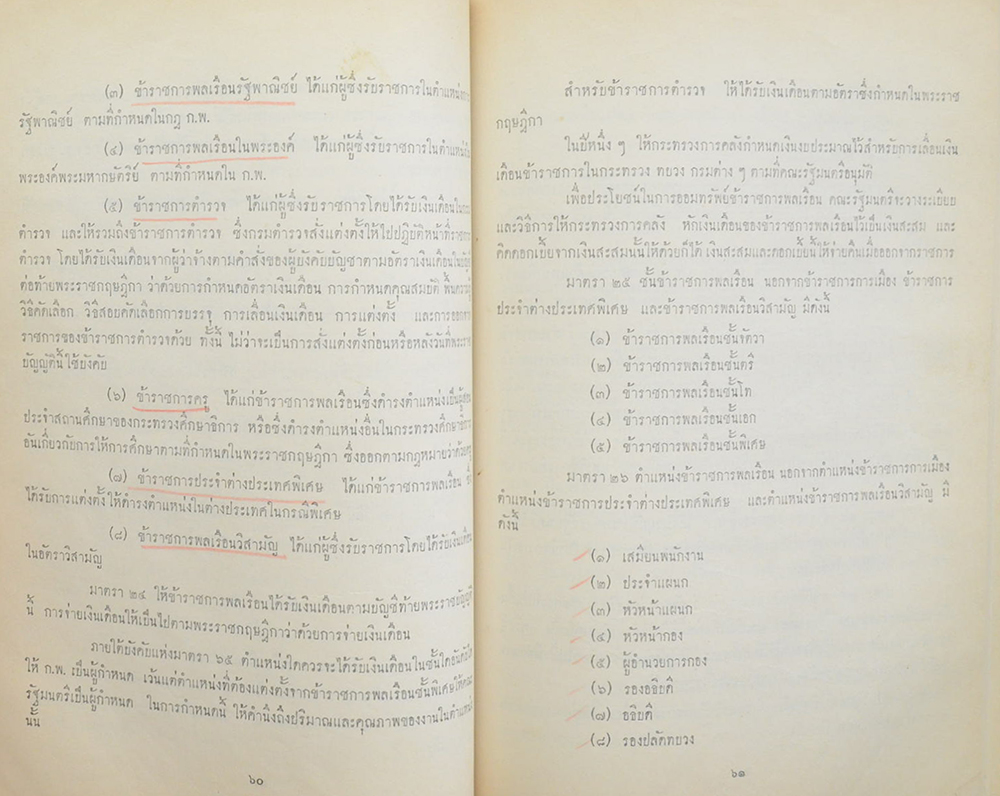 (๓) ข้าราชการพลเรือนรัฐพาณิชย์ ได้แก่ผู้ซึ่งรับราชการในตำแหน่ง
รัฐพาณิชย์ ตามที่กำหนดในกฎ ก.พ.
(๔) ข้าราชการพลเรือนในพระองค์ ได้แก่ผู้ซึ่งรับราชการในตำแหน่ง
พระองค์พระมหากษัตริย์ ตามที่กำหนดใน ก.พ.
(๕) ข้าราชการตำรวจ ได้แก่ผู้ซึ่งรับราชการโดยได้รับเงินเดือนใน
ตำรวจ และให้รวมถึงข้าราชการตำรวจ ซึ่งกรมตำรวจสั่งแต่งตั้งให้ไปปฏิบัติหน้าที่ราชการ
ตำรวจ โดยได้รับเงินเดือนจากผู้ว่าจ้างตามคำสั่งของผู้บังคับบัญชาตามอัตราเงินเดือนใน
ต่อท้ายพระราชกฤษฎีกา ว่าด้วยการกำหนดอัตราเงินเดือน การกำหนดคุณสมบัติ พื้นความรู้
วิธีคัดเลือก วิธีสอบคัดเลือกการบรรจุ การเลื่อนเงินเดือน การแต่งตั้ง และการออกจาก
ราชการของข้าราชการตำรวจด้วย ทั้งนี้ ไม่ว่าจะเป็นการสั่งแต่งตั้งก่อนหรือหลังวันที่พระราช
บัญญัตินี้ใช้บังคับ
(๖) ข้าราชการครู ได้แก่ข้าราชการพลเรือนซึ่งดำรงตำแหน่งเป็นผู้สอน
ประจำสถานศึกษาของกระทรวงศึกษาธิการ หรือซึ่งดำรงตำแหน่งอื่นในกระทรวงศึกษาธิการ
อันเกี่ยวกับการให้การศึกษาตามที่กำหนดในพระราชกฤษฎีกา ซึ่งออกตามกฎหมายว่าด้วยครู
(๗) ข้าราชการประจำต่างประเทศพิเศษ ได้แก่ข้าราชการพลเรือน ซึ่ง
ได้รับการแต่งตั้งให้ดำรงตำแหน่งในต่างประเทศในกรณีพิเศษ
(๘) ข้าราชการพลเรือนวิสามัญ ได้แก่ผู้ซึ่งรับราชการโดยได้รับเงินเดือน
ในอัตราวิสามัญ
มาตรา ๒๔ ให้ข้าราชการพลเรือนได้รับเงินเดือนตามบัญชีท้ายพระราชบัญญัติ
นี้ การจ่ายเงินเดือนให้เป็นไปตามพระราชกฤษฎีกาว่าด้วยการจ่ายเงินเดือน
ภายใต้บังคับแห่งมาตรา ๖๕ ตำแหน่งใดควรจะได้รับเงินเดือนในชั้นใดอันดับใด
ให้ ก.พ. เป็นผู้กำหนด เว้นแต่ตำแหน่งที่ต้องแต่งตั้งจากข้าราชการพลเรือนชั้นพิเศษให้คณะ
รัฐมนตรีเป็นผู้กำหนด ในการกำหนดนี้ ให้คำนึงถึงปริมาณและคุณภาพของงานในตำแหน่ง
นั้น
๖๐
สำหรับข้าราชการตำรวจ ให้ได้รับเงินเดือนตามอัตราซึ่งกำหนดในพระราช
กฤษฎีกา
ในปีหนึ่ง ๆ ให้กระทรวงการคลังกำหนดเงินงบประมาณไว้สำหรับการเลื่อนเงิน
เดือนข้าราชการในกระทรวง ทบวง กรมต่าง ๆ ตามที่คณะรัฐมนตรีอนุมัติ
เพื่อประโยชน์ในการออมทรัพย์ข้าราชการพลเรือน คณะรัฐมนตรีจะวางระเบียบ
และวิธีการให้กระทรวงการคลัง หักเงินเดือนของข้าราชการพลเรือนไว้เป็นเงินสะสม และ
คิดดอกเบี้ยจากเงินสะสมนั้นให้ด้วยก็ได้ เงินสะสมและดอกเบี้ยนี้ให้จ่ายคืนเมื่อออกจากราชการ
มาตรา ๒๕ ชั้นข้าราชการพลเรือน นอกจากข้าราชการการเมือง ข้าราชการ
ประจำต่างประเทศพิเศษ และข้าราชการพลเรือนวิสามัญ มีดังนี้
(๑) ข้าราชการพลเรือนชั้นจัตวา
(๒) ข้าราชการพลเรือนชั้นตรี
(๓) ข้าราชการพลเรือนชั้นโท
(๔) ข้าราชการพลเรือนชั้นเอก
(๕) ข้าราชการพลเรือนชั้นพิเศษ
มาตรา ๒๖ ตำแหน่งข้าราชการพลเรือน นอกจากตำแหน่งข้าราชการการเมือง
ตำแหน่งข้าราชการประจำต่างประเทศพิเศษ และตำแหน่งข้าราชการพลเรือนวิสามัญ มี
ดังนี้
(๑) เสมียนพนักงาน
(๒) ประจำแผนก
(๓) หัวหน้าแผนก
(๔) หัวหน้ากอง
(๕) ผู้อำนวยการกอง
(๖) รองอธิบดี
(๗) อธิบดี
(๘) รองปลัดทบวง
๖๑